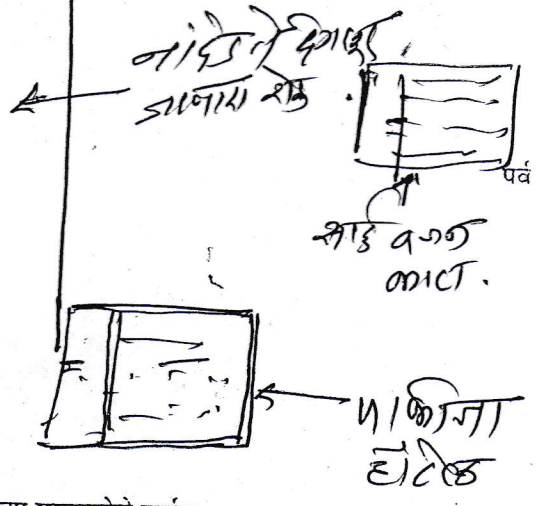 नांदेड ते देगलूर
जाणारा रोड
पूर्व
साई वजन
काटा.
पाकीजा
हॉटेल